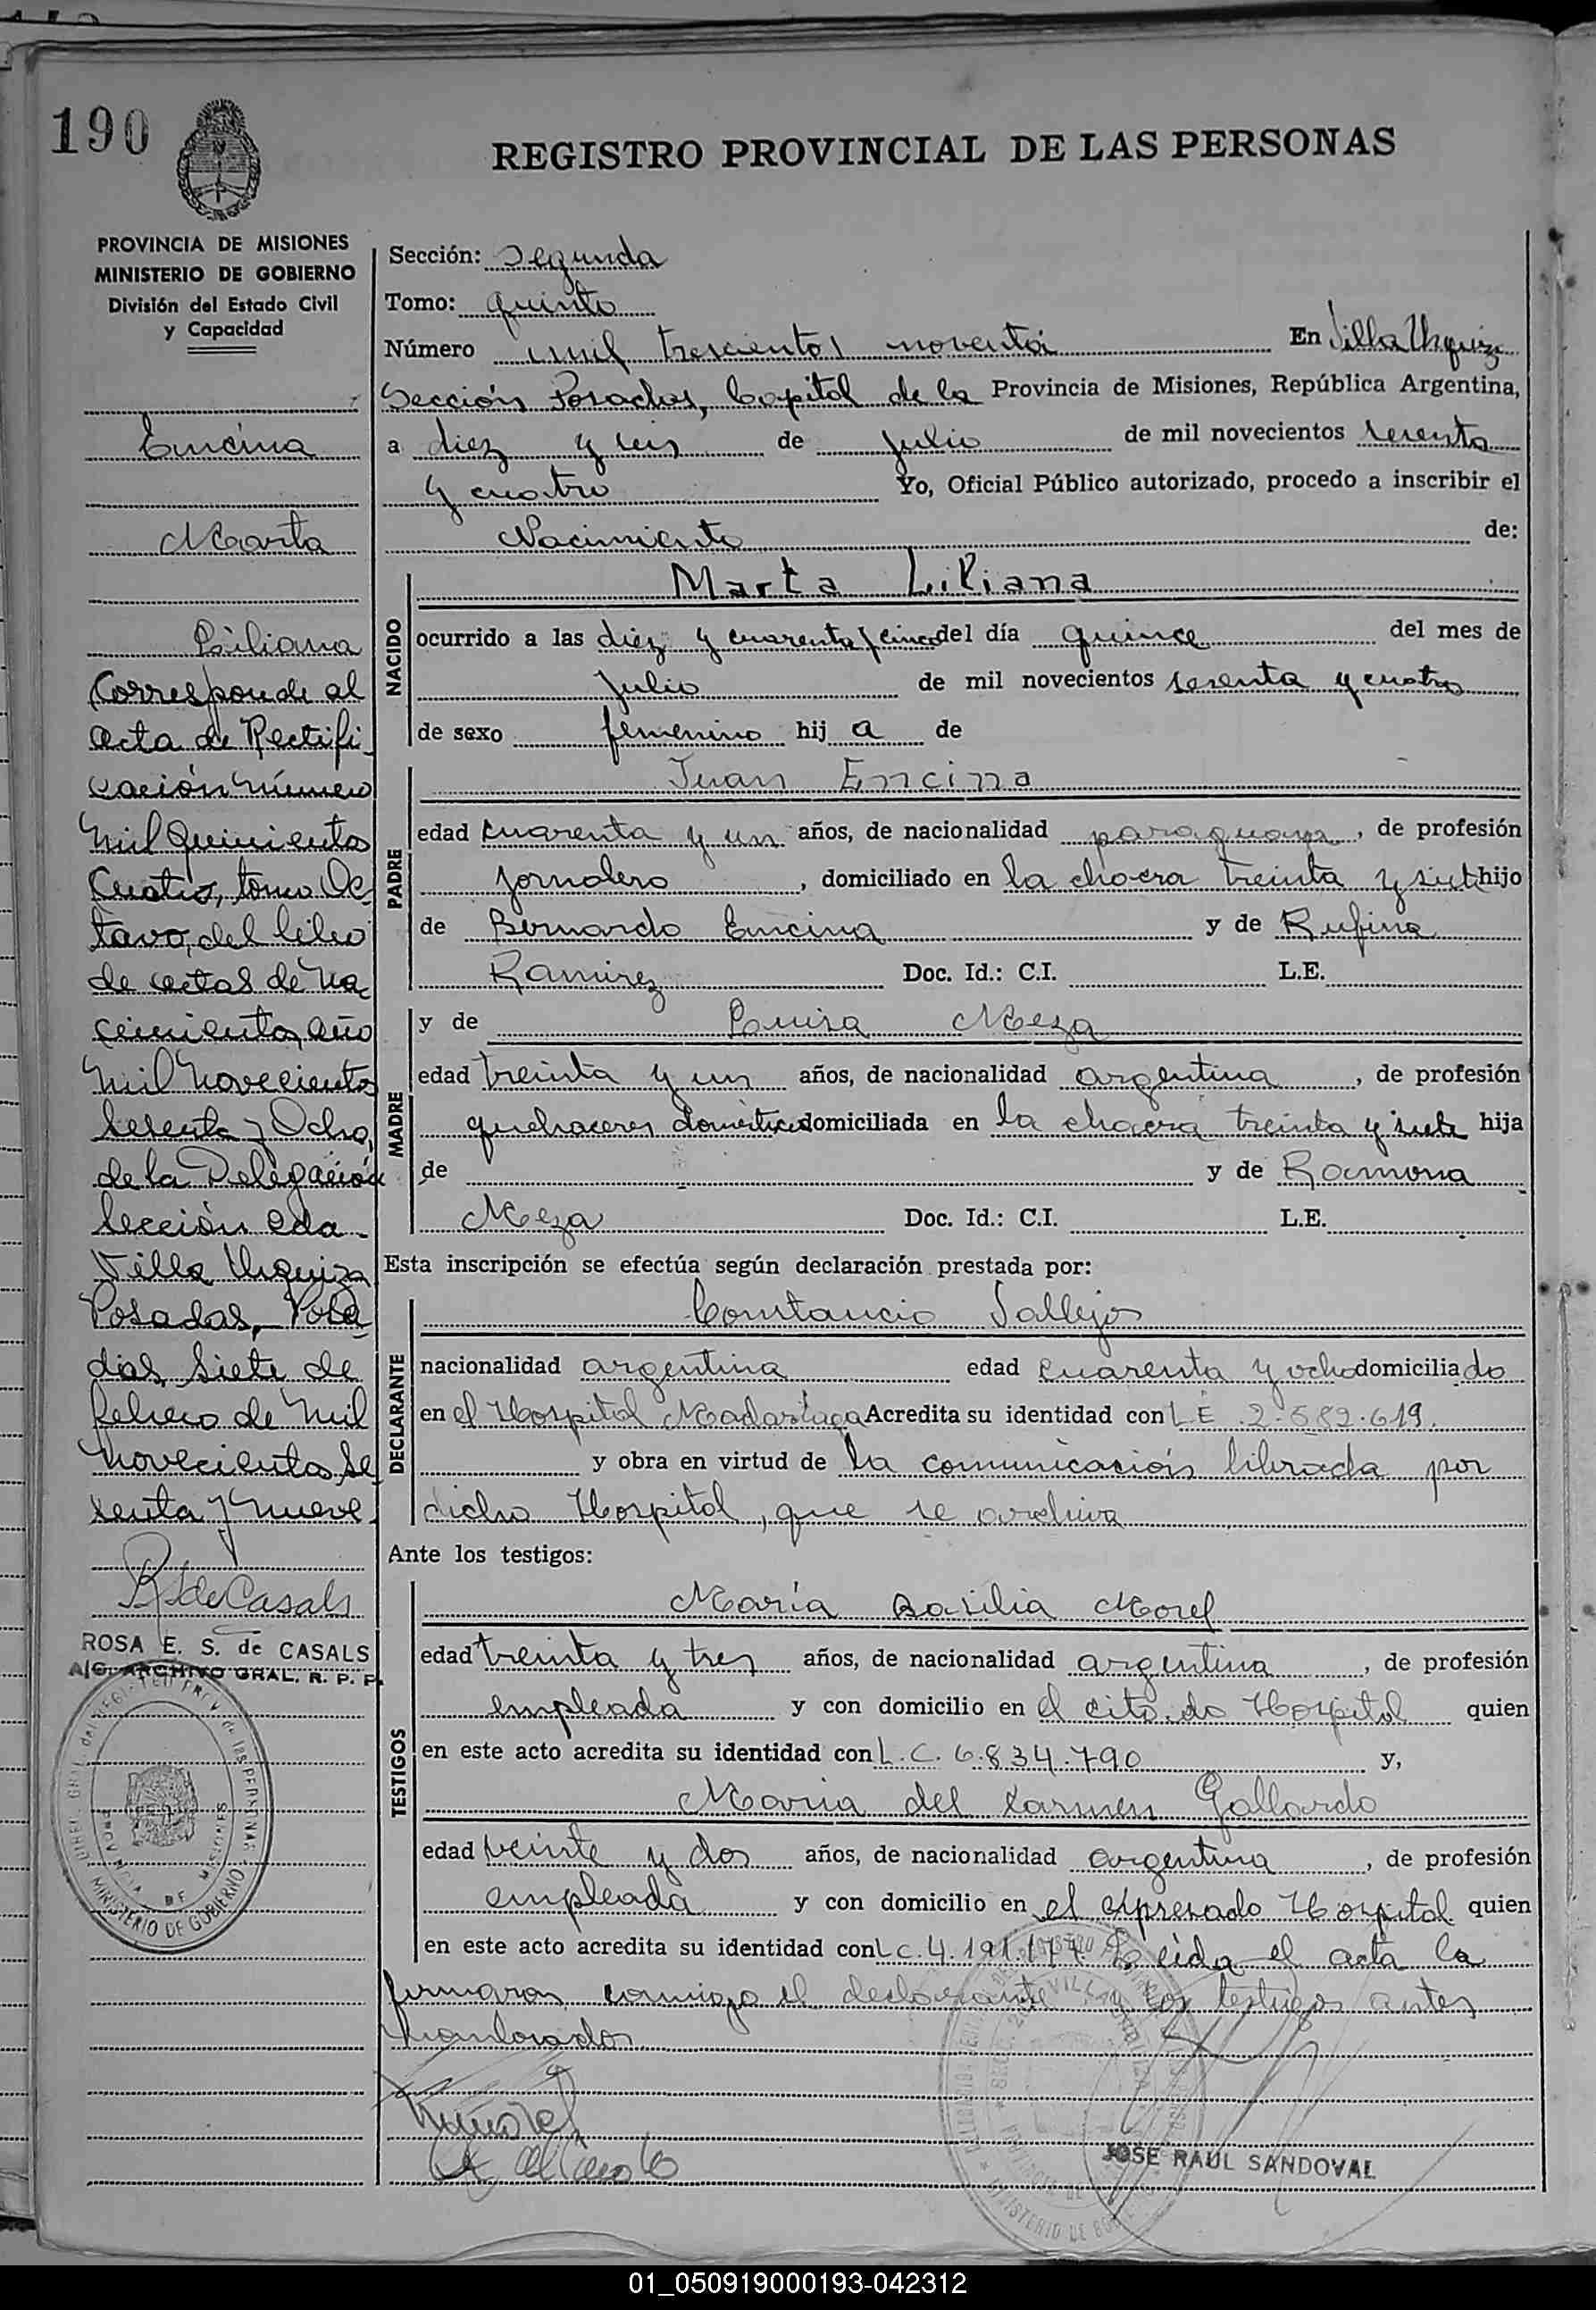 190
REGISTRO PROVINCIAL DE LAS PERSONAS
PROVINCIA DE MISIONES
MINISTERIO DE GOBIERNO
División del Estado Civil
y Capacidad
Encina
Marta
Liliana
Corresponde al
acta de Rectifi-
cación número
mil quinientos
cuatro, tomo Oc-
tavo, del libro
de actas de na-
cimientos, año
mil novecientos
sesenta y Ocho,
de la Delegación
Sección 2da
Villa Urquiza
Posadas, Posa-
das, siete de
febrero de mil
novecientos se
senta y nueve.
R S de Casals
ROSA E. S. de CASALS
A/C. ARCHIVO GRAL. R. P. P.
MINISTERIO DE GOBIERNO
Sección: Segunda
Tomo: quinto
Número mil trescientos noventa En Villa Urquiza
Sección Posadas, Capital de la Provincia de Misiones, República Argentina,
a diez y seis de julio de mil novecientos sesenta
y cuatro Yo, Oficial Público autorizado, procedo a inscribir el
Nacimiento de:
NACIDO
Marta Liliana
ocurrido a las diez y cuarenta y cinco del día quince del mes de
Julio de mil novecientos sesenta y cuatro
de sexo femenino hij a de
PADRE
Juan Encina
edad cuarenta y un años, de nacionalidad paraguaya, de profesión
jornalero, domiciliado en la chacra treinta y siete hijo
de Bernardo Encina y de Rufina
Ramirez Doc. Id.: C.I. L.E.
MADRE
y de Luisa Meza
edad treinta y un años, de nacionalidad argentina, de profesión
quehaceres domésticos domiciliada en la chacra treinta y siete hija
de y de Ramona
Meza Doc. Id.: C.I. L.E.
Esta inscripción se efectúa según declaración prestada por:
DECLARANTE
Constancio Vallejos
nacionalidad argentina edad cuarenta y ocho domiciliado
en el Hospital Madariaga Acredita su identidad con L.E. 2.582.619.
y obra en virtud de la comunicación librada por
dicho Hospital, que se archiva
Ante los testigos:
TESTIGOS
María Basilia Morel
edad treinta y tres años, de nacionalidad argentina, de profesión
empleada y con domicilio en el citado Hospital quien
en este acto acredita su identidad con L.C. 6.834.790 y,
María del Carmen Gallardo
edad veinte y dos años, de nacionalidad argentina, de profesión
empleada y con domicilio en el expresado Hospital quien
en este acto acredita su identidad con L.C. 4.191.177. Leida el acta la
firmaron conmigo el declarante y los testigos antes
nombrados
JOSE RAUL SANDOVAL
01_050919000193-042312